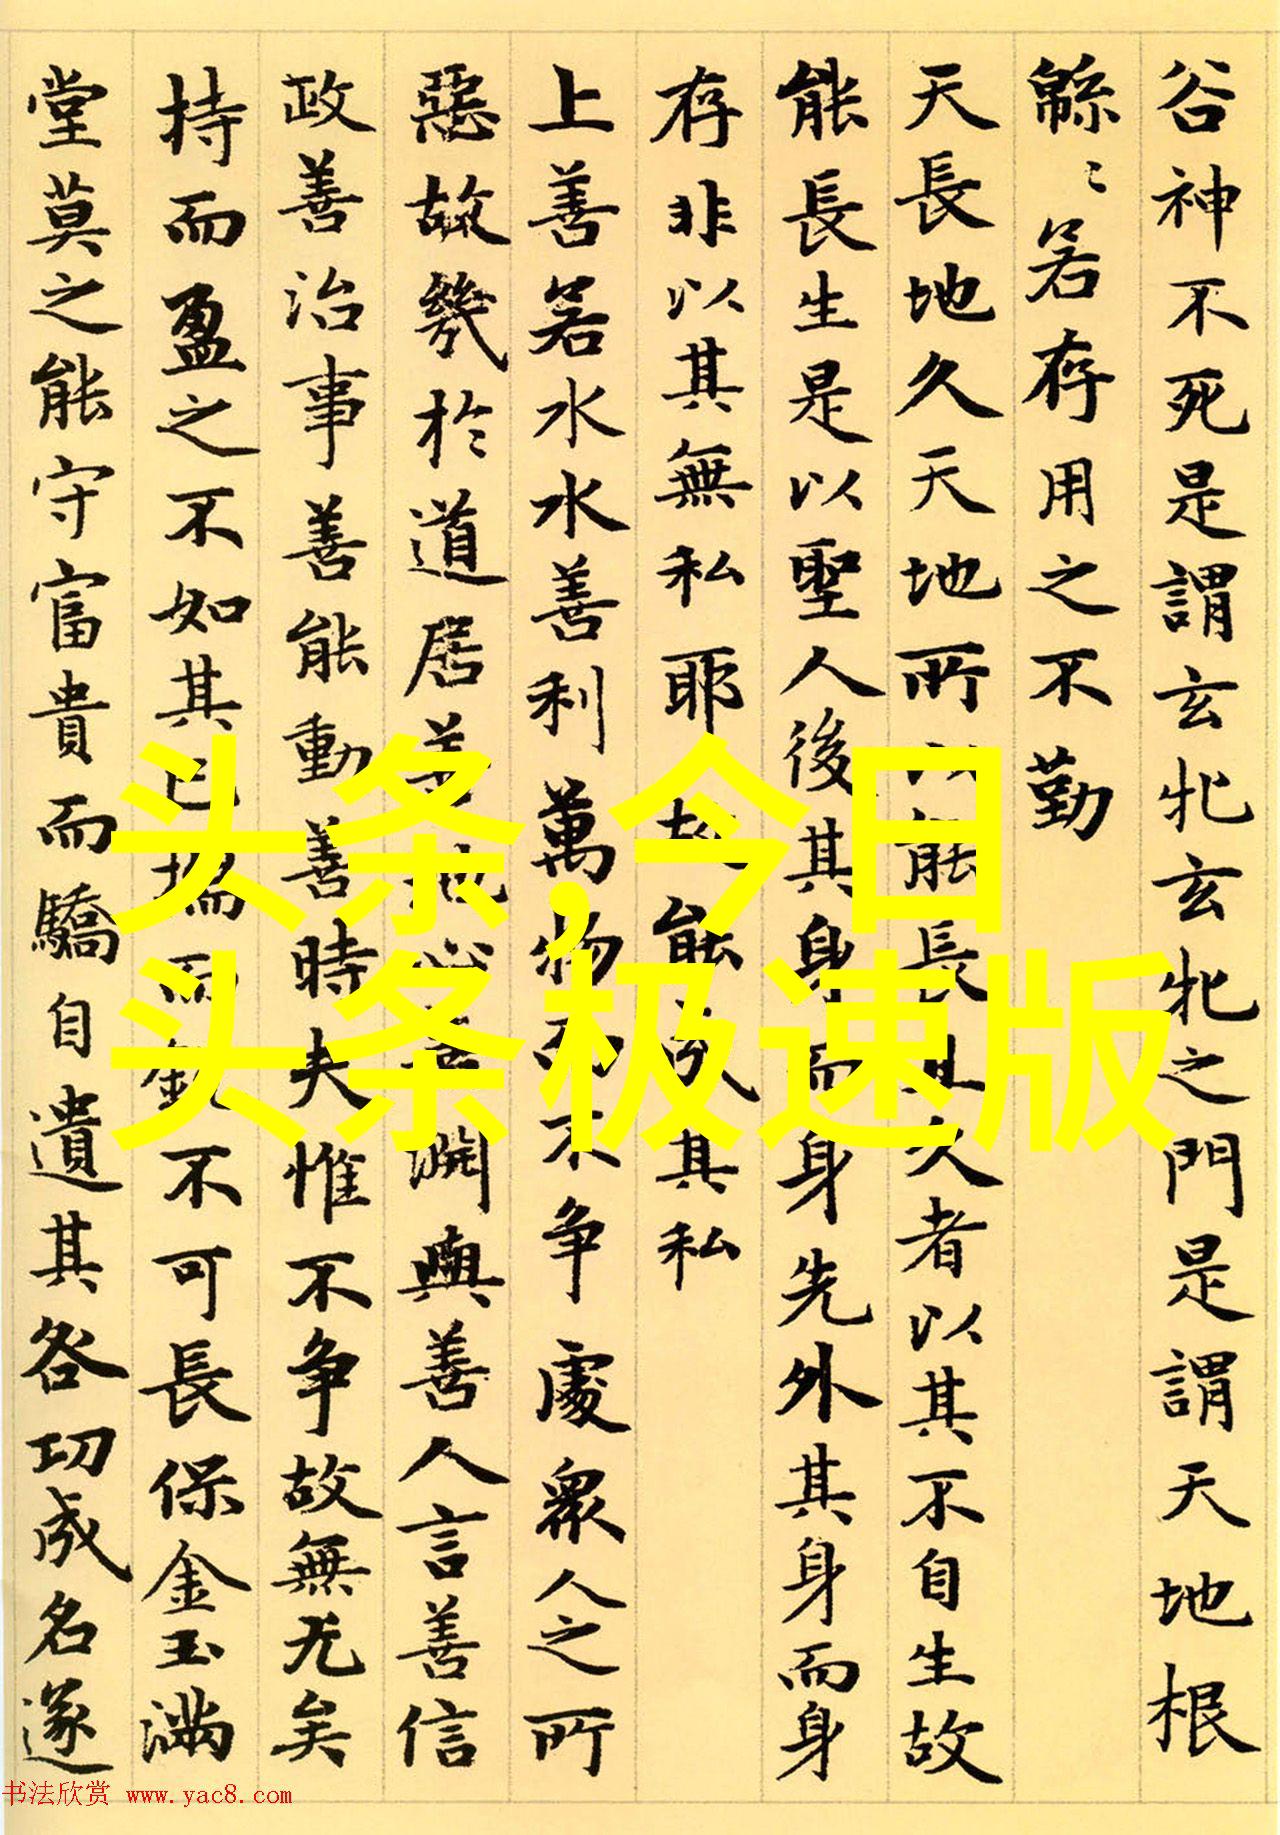 谷神不死是謂玄牝玄牝之門是謂天地根
緜〻若存用之不勤
天長地久天地所以能長且久者以其不自生故
能長生是以聖人後其身而身先外其身而身
存非以其無私耶故能成其私
上善若水水善利萬物而不争處衆人之所
惡故幾於道居善地心善渊與善人言善信
政善治事善能動善時夫惟不争故無尤矣
持而盈之不如其已揣而銳不可長保金玉滿
堂莫之能守富貴而驕自遺其咎功成名遂
头条,今日
头条极速版
书法欣赏 www.yac8.com